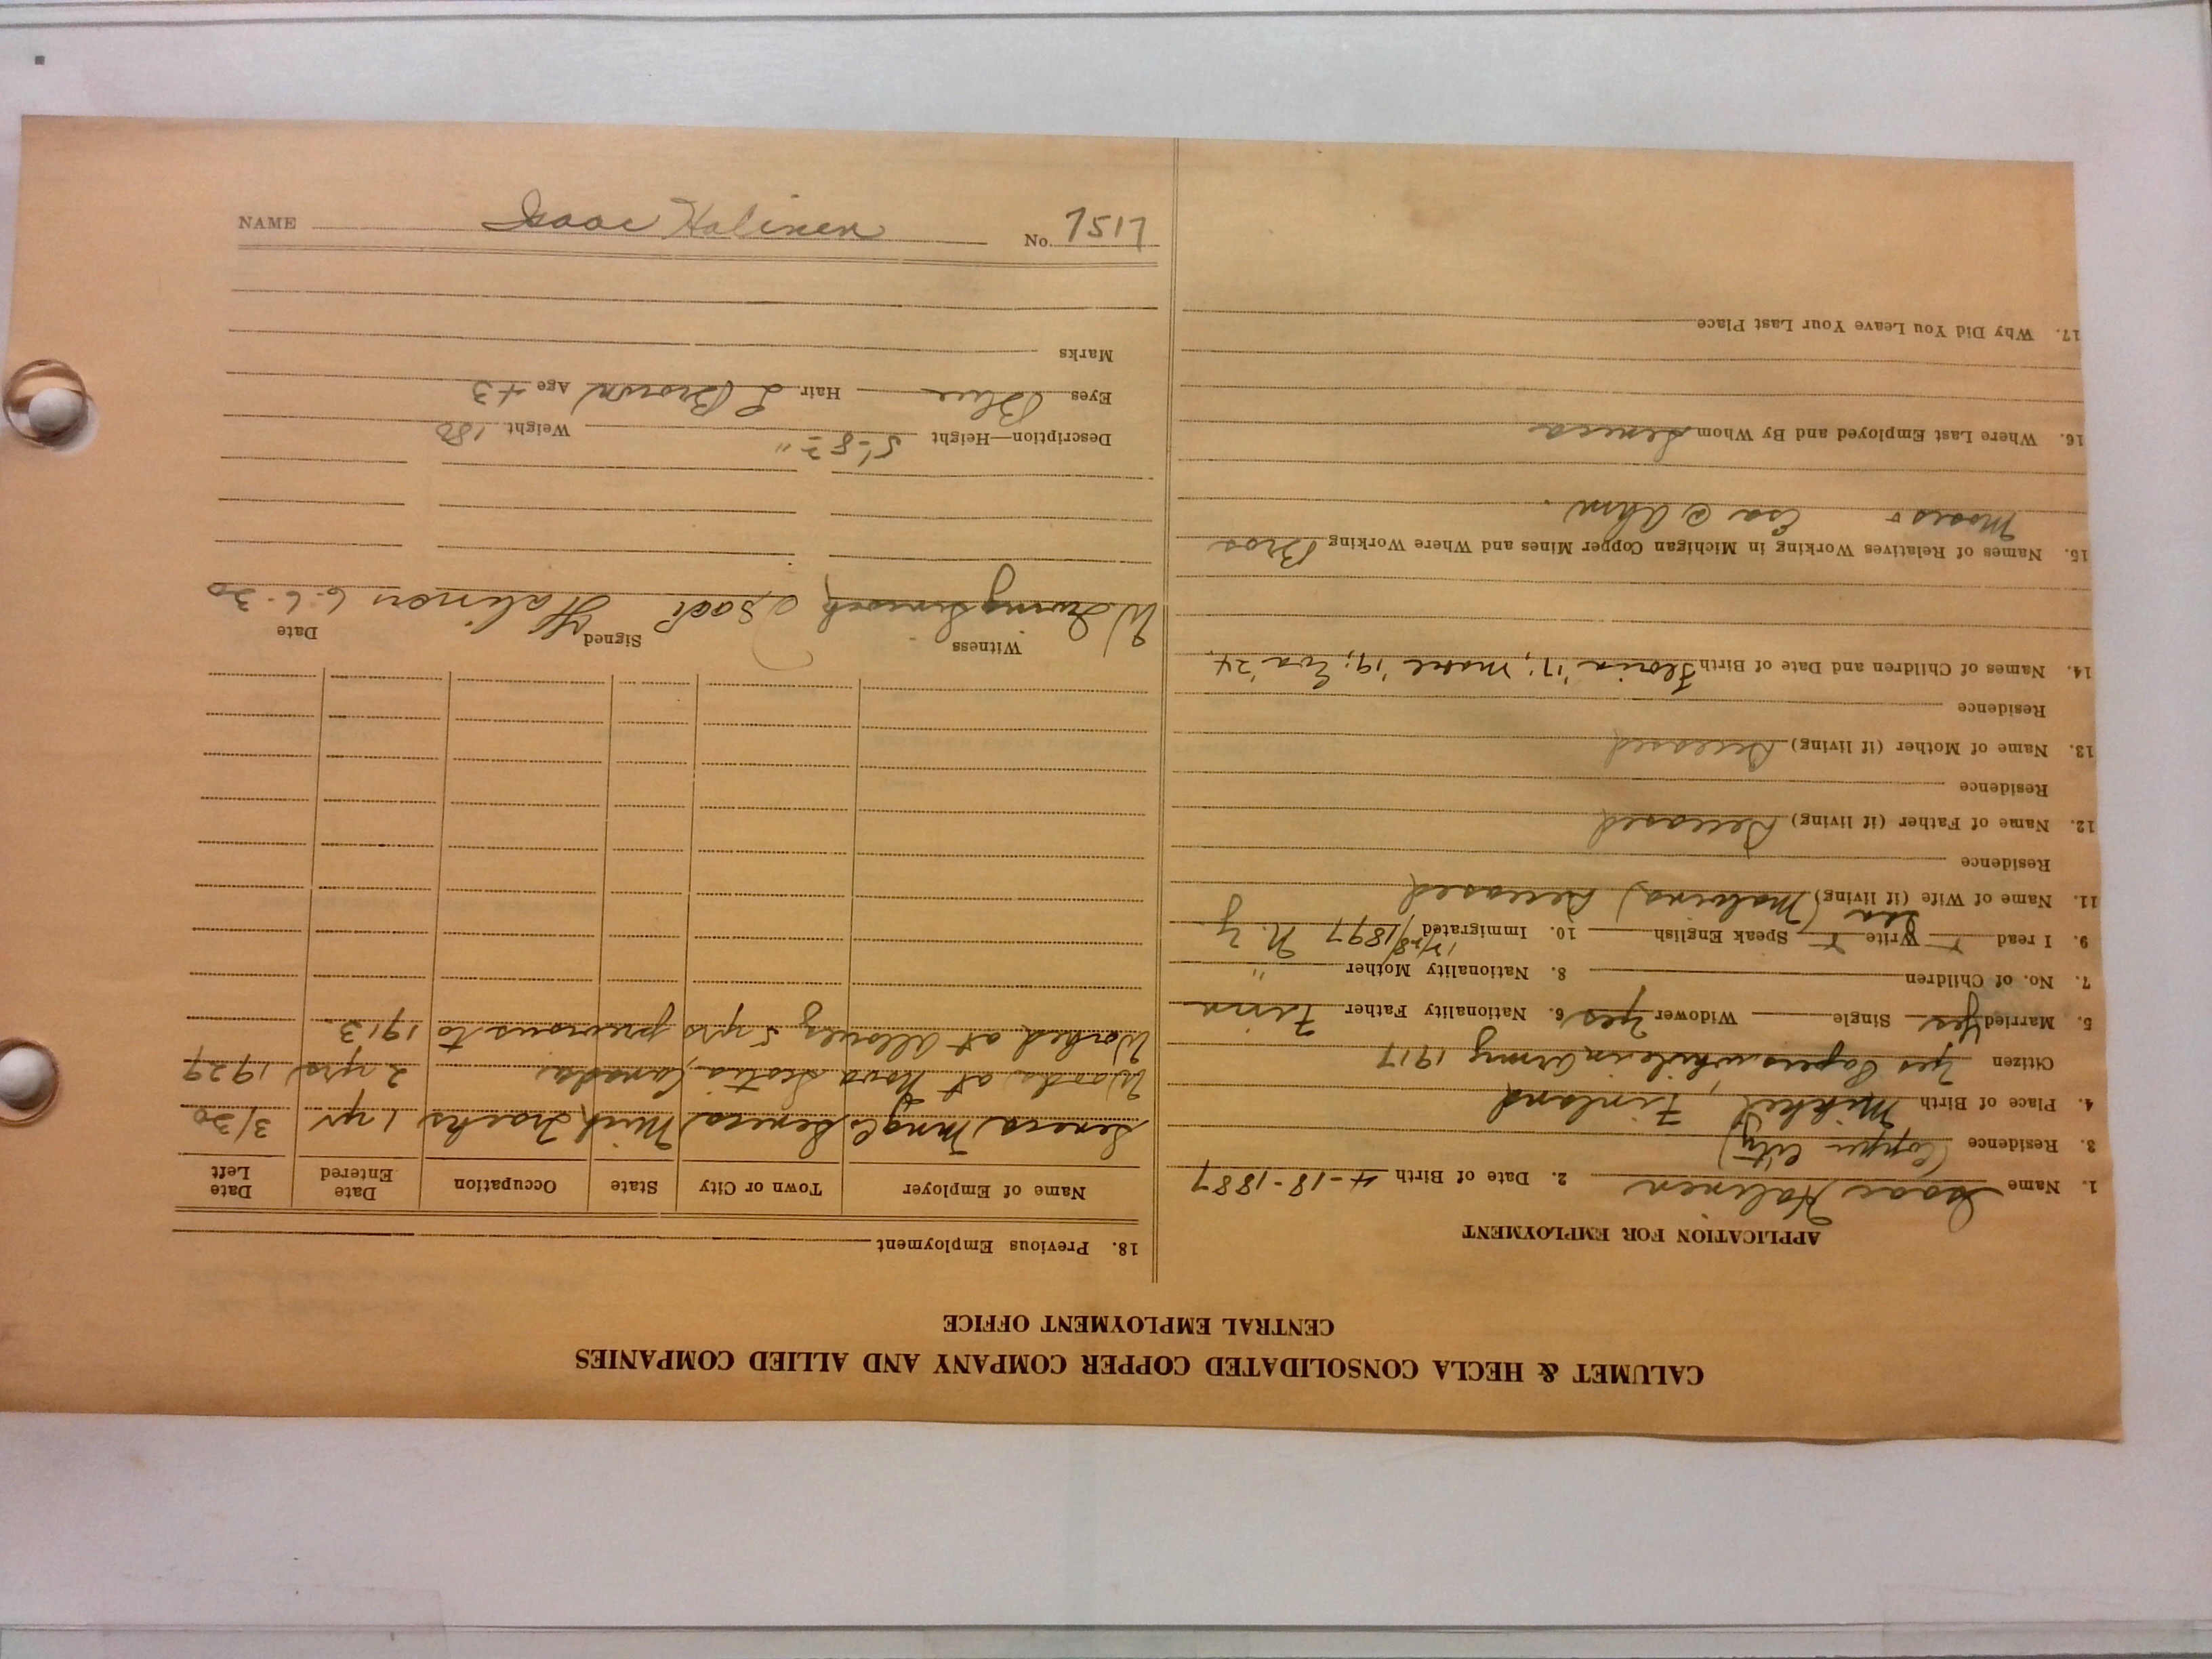 CALUMET & HECLA CONSOLIDATED COPPER COMPANY AND ALLIED COMPANIES
CENTRAL EMPLOYMENT OFFICE
APPLICATION FOR EMPLOYMENT
1. Name Isaac Halinen 2. Date of Birth 4-18-1887
3. Residence Copper City
4. Place of Birth Mikkeli, Finland
Citizen Yes Papers while in Army 1917
5. Married Yes Single Widower Yes 6. Nationality Father Finn
7. No. of Children 8. Nationality Mother "
9. I read Write Speak English 10. Immigrated 1897 N.Y
11. Name of Wife (if living) (Malvina) Deceased
Residence
12. Name of Father (if living) Deceased
Residence
13. Name of Mother (if living) Deceased
Residence
14. Names of Children and Date of Birth '17; '19; Eva '24
15. Names of Relatives Working in Michigan Copper Mines and Where Working Bros
Moses Esa @ Ahm.
16. Where Last Employed and By Whom Seneca
17. Why Did You Leave Your Last Place
18. Previous Employment
Name of Employer Town or City State Occupation Date Entered Date Left
Seneca Mng Co Seneca Mich 1 yr 3/30
Woods at Nova Scotia, Canada 2 yrs 1929
Worked at 5 yrs previous to 1913.
Witness Signed Date
W Isaac Halinen 6-6-30
Description—Height 5'-8 " Weight 180
Eyes Blue Hair L Brown Age 43
Marks
NAME Isaac Halinen No. 7517